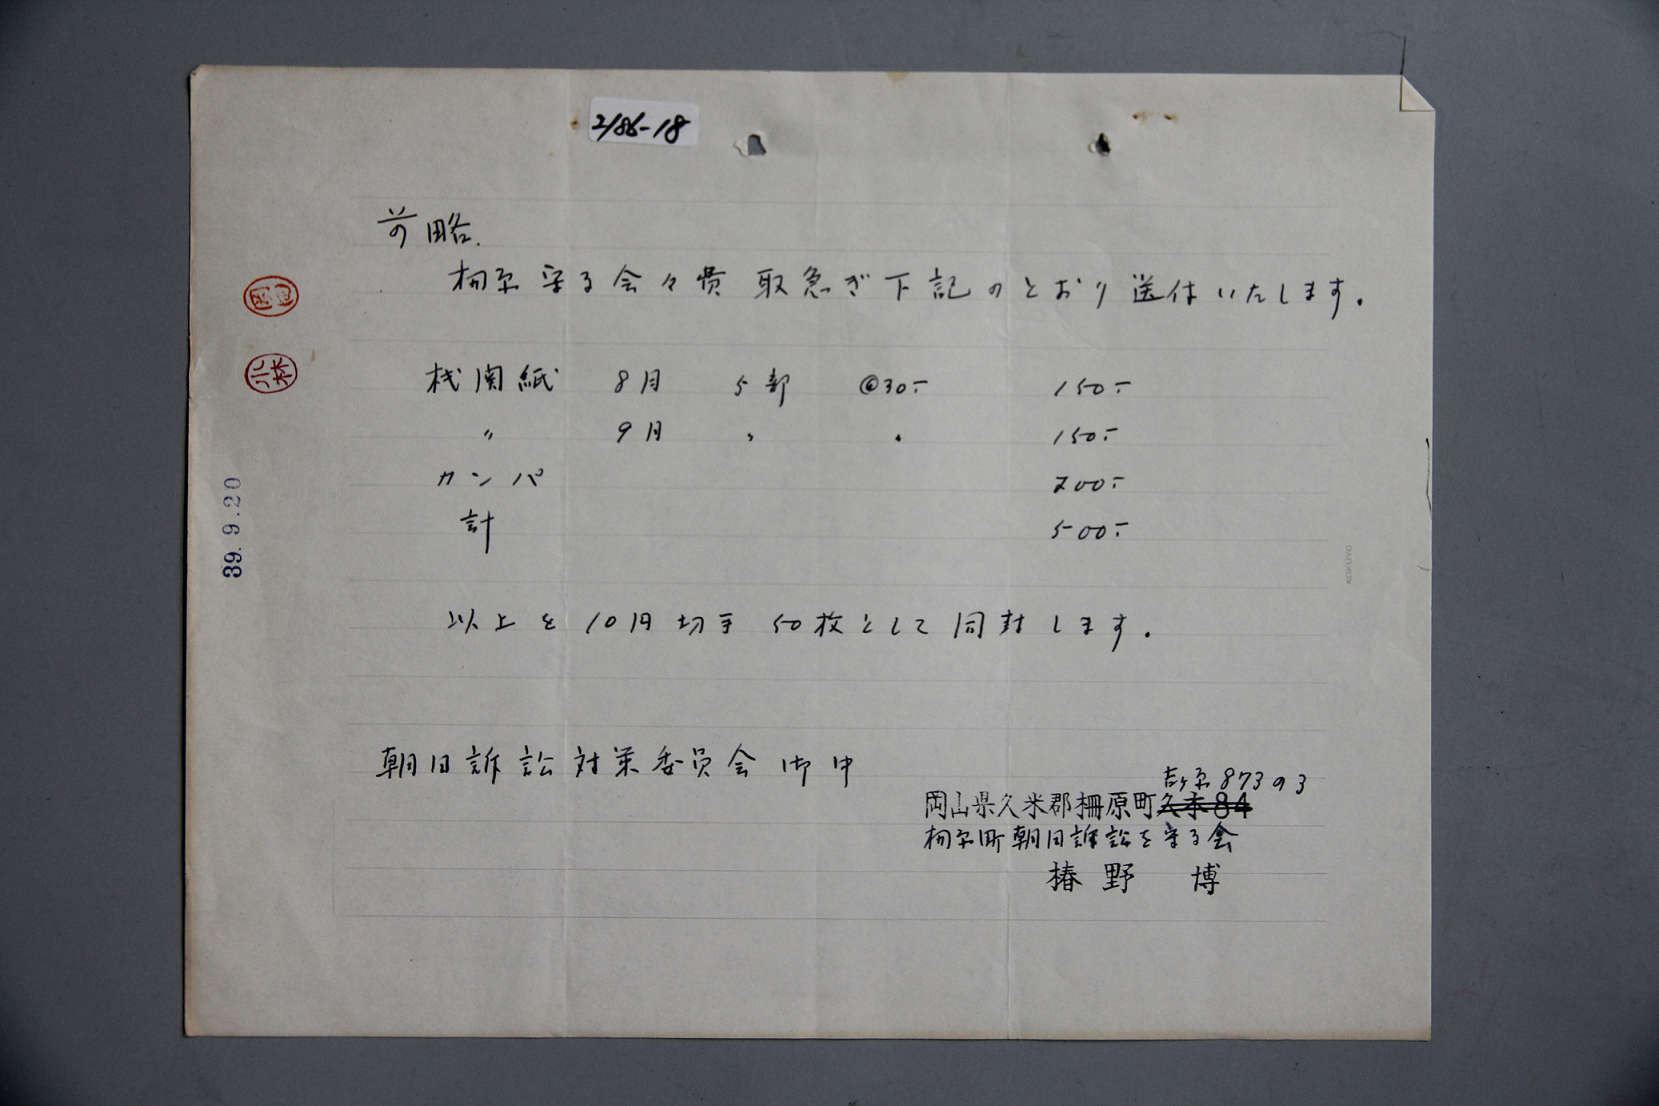 2186-18
前略.
柵原守る会々費取急ぎ下記のとおり送付いたします.
小林
機関紙 8月 5部 @30.- 150.-
〃 9月 〃 〃 150.-
カンパ 200.-
計 500.-
39.9.20
以上を10円切手50枚として同封します.
朝日訴訟対策委員会御中
吉ヶ原873の3
岡山県久米郡柵原町久木84
柵原町朝日訴訟を守る会
椿野 博